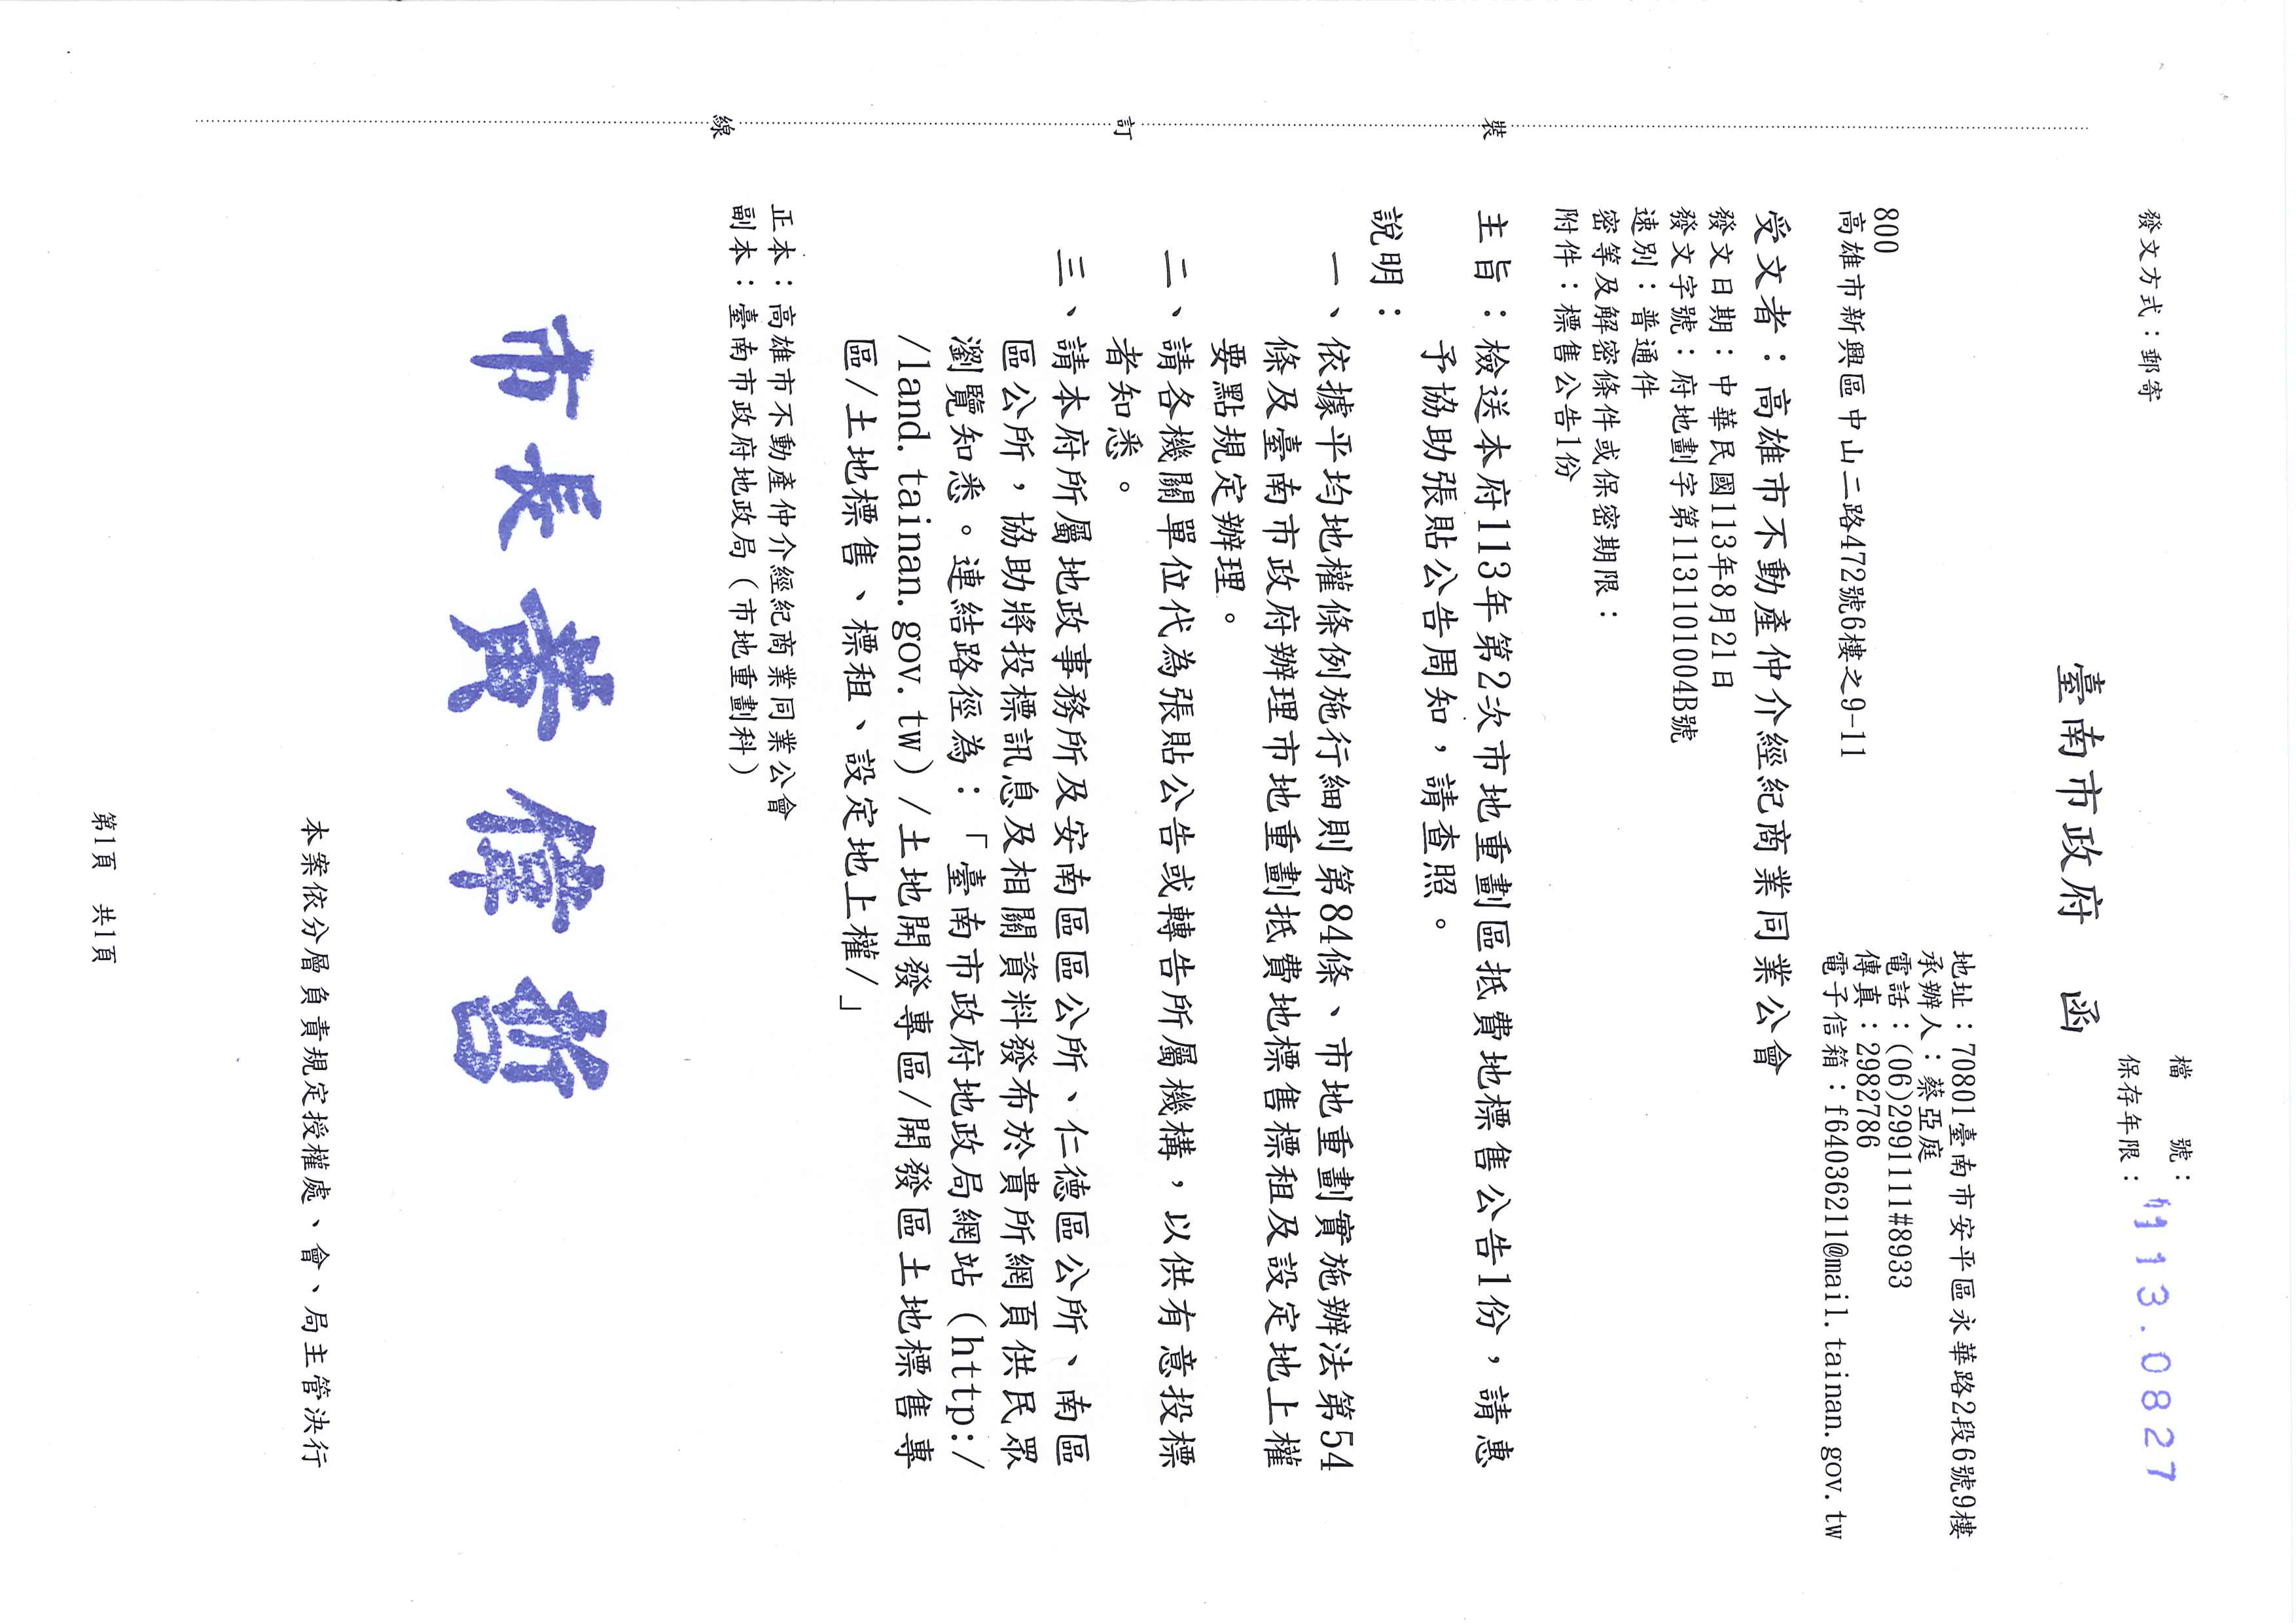 檔　　號：
保存年限：
113.0827
發文方式：郵寄
臺南市政府　函
地址：70801臺南市安平區永華路2段6號9樓
承辦人：蔡亞庭
電話：(06)2991111#8933
傳真：2982786
電子信箱：f64036211@mail.tainan.gov.tw
800
高雄市新興區中山二路472號6樓之9-11
受文者：高雄市不動產仲介經紀商業同業公會
發文日期：中華民國113年8月21日
發文字號：府地劃字第1131101004B號
速別：普通件
密等及解密條件或保密期限：
附件：標售公告1份
主旨：檢送本府113年第2次市地重劃區抵費地標售公告1份，請惠
予協助張貼公告周知，請查照。
說明：
一、依據平均地權條例施行細則第84條、市地重劃實施辦法第54
條及臺南市政府辦理市地重劃抵費地標售標租及設定地上權
要點規定辦理。
二、請各機關單位代為張貼公告或轉告所屬機構，以供有意投標
者知悉。
三、請本府所屬地政事務所及安南區區公所、仁德區公所、南區
區公所，協助將投標訊息及相關資料發布於貴所網頁供民眾
瀏覽知悉。連結路徑為：「臺南市政府地政局網站（http:/
/land.tainan.gov.tw）/土地開發專區/開發區土地標售專
區/土地標售、標租、設定地上權/」
正本：高雄市不動產仲介經紀商業同業公會
副本：臺南市政府地政局（市地重劃科）
市長黃偉哲
本案依分層負責規定授權處、會、局主管決行
第1頁　共1頁
裝
訂
線